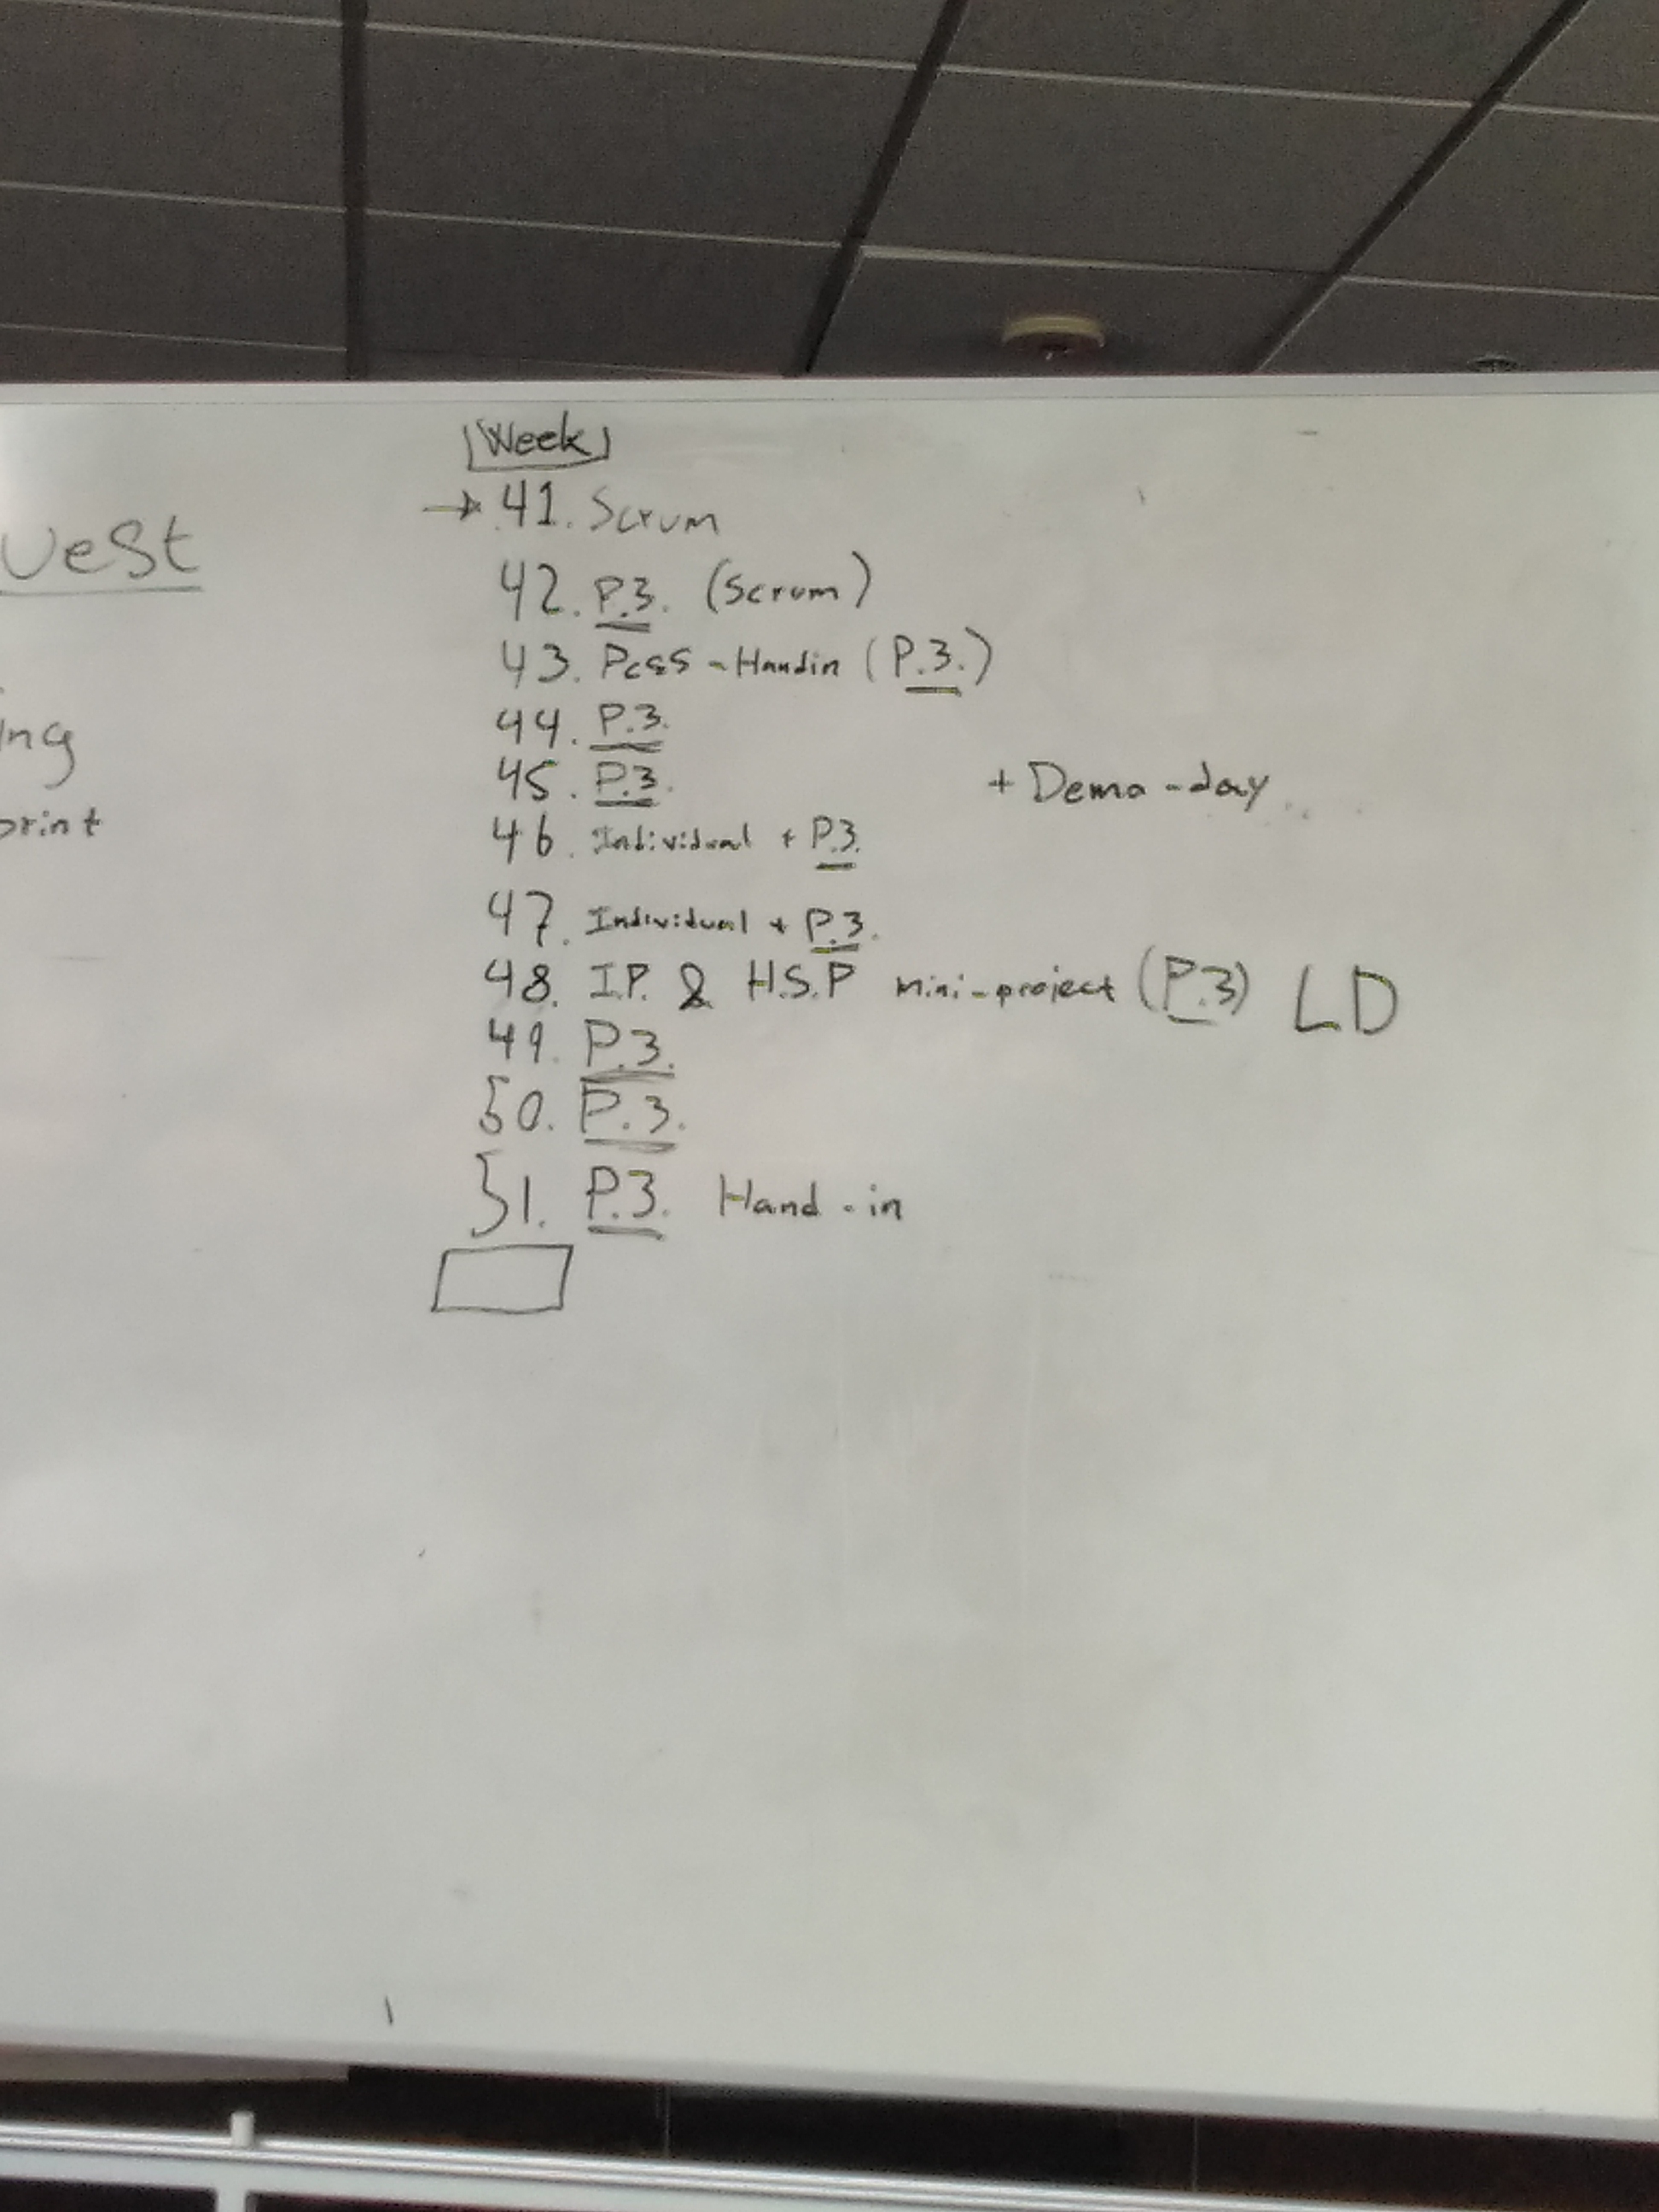 Week
→ 41. Scrum
uest
42. P.3. (Scrum)
43. PCSS - Handin (P.3.)
44. P.3.
ing
45. P.3. + Demo-day
print
46. Individual + P.3.
47. Individual + P.3.
48. I.P. & H.S.P mini-project (P.3) LD
49. P.3.
50. P.3.
51. P.3. Hand-in